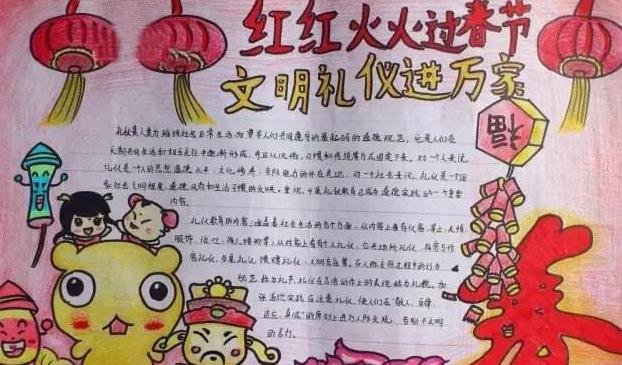 红红火火过春节
文明礼仪进万家
福
礼仪是人类为维持社会正常生活而要求人们共同遵守的最起码的道德规范，它是人们在
长期共同生活和相互交往中逐渐形成，并且以风俗、习惯和传统等方式固定下来。对一个人来说，
礼仪是一个人的思想道德水平、文化修养、交际能力的外在表现，对一个社会来说，礼仪是一个国
家社会文明程度、道德风尚和生活习惯的反映。重视、开展礼仪教育已成为道德实践的一个重要
内容。
礼仪教育的内容涵盖着社会生活的各个方面。从内容上看有仪容、举止、表情、
服饰、谈吐、待人接物等；从对象上看有个人礼仪、公共场所礼仪、待客与作
客礼仪、餐桌礼仪、馈赠礼仪、文明交往等。在人际交往过程中的行为
规范称为礼节，礼仪在言语动作上的表现称为礼貌。加
强道德实践应注意礼仪，使人们在“敬人、自律、
适度、真诚”的原则上进行人际交往，告别不文明
的言行。
春